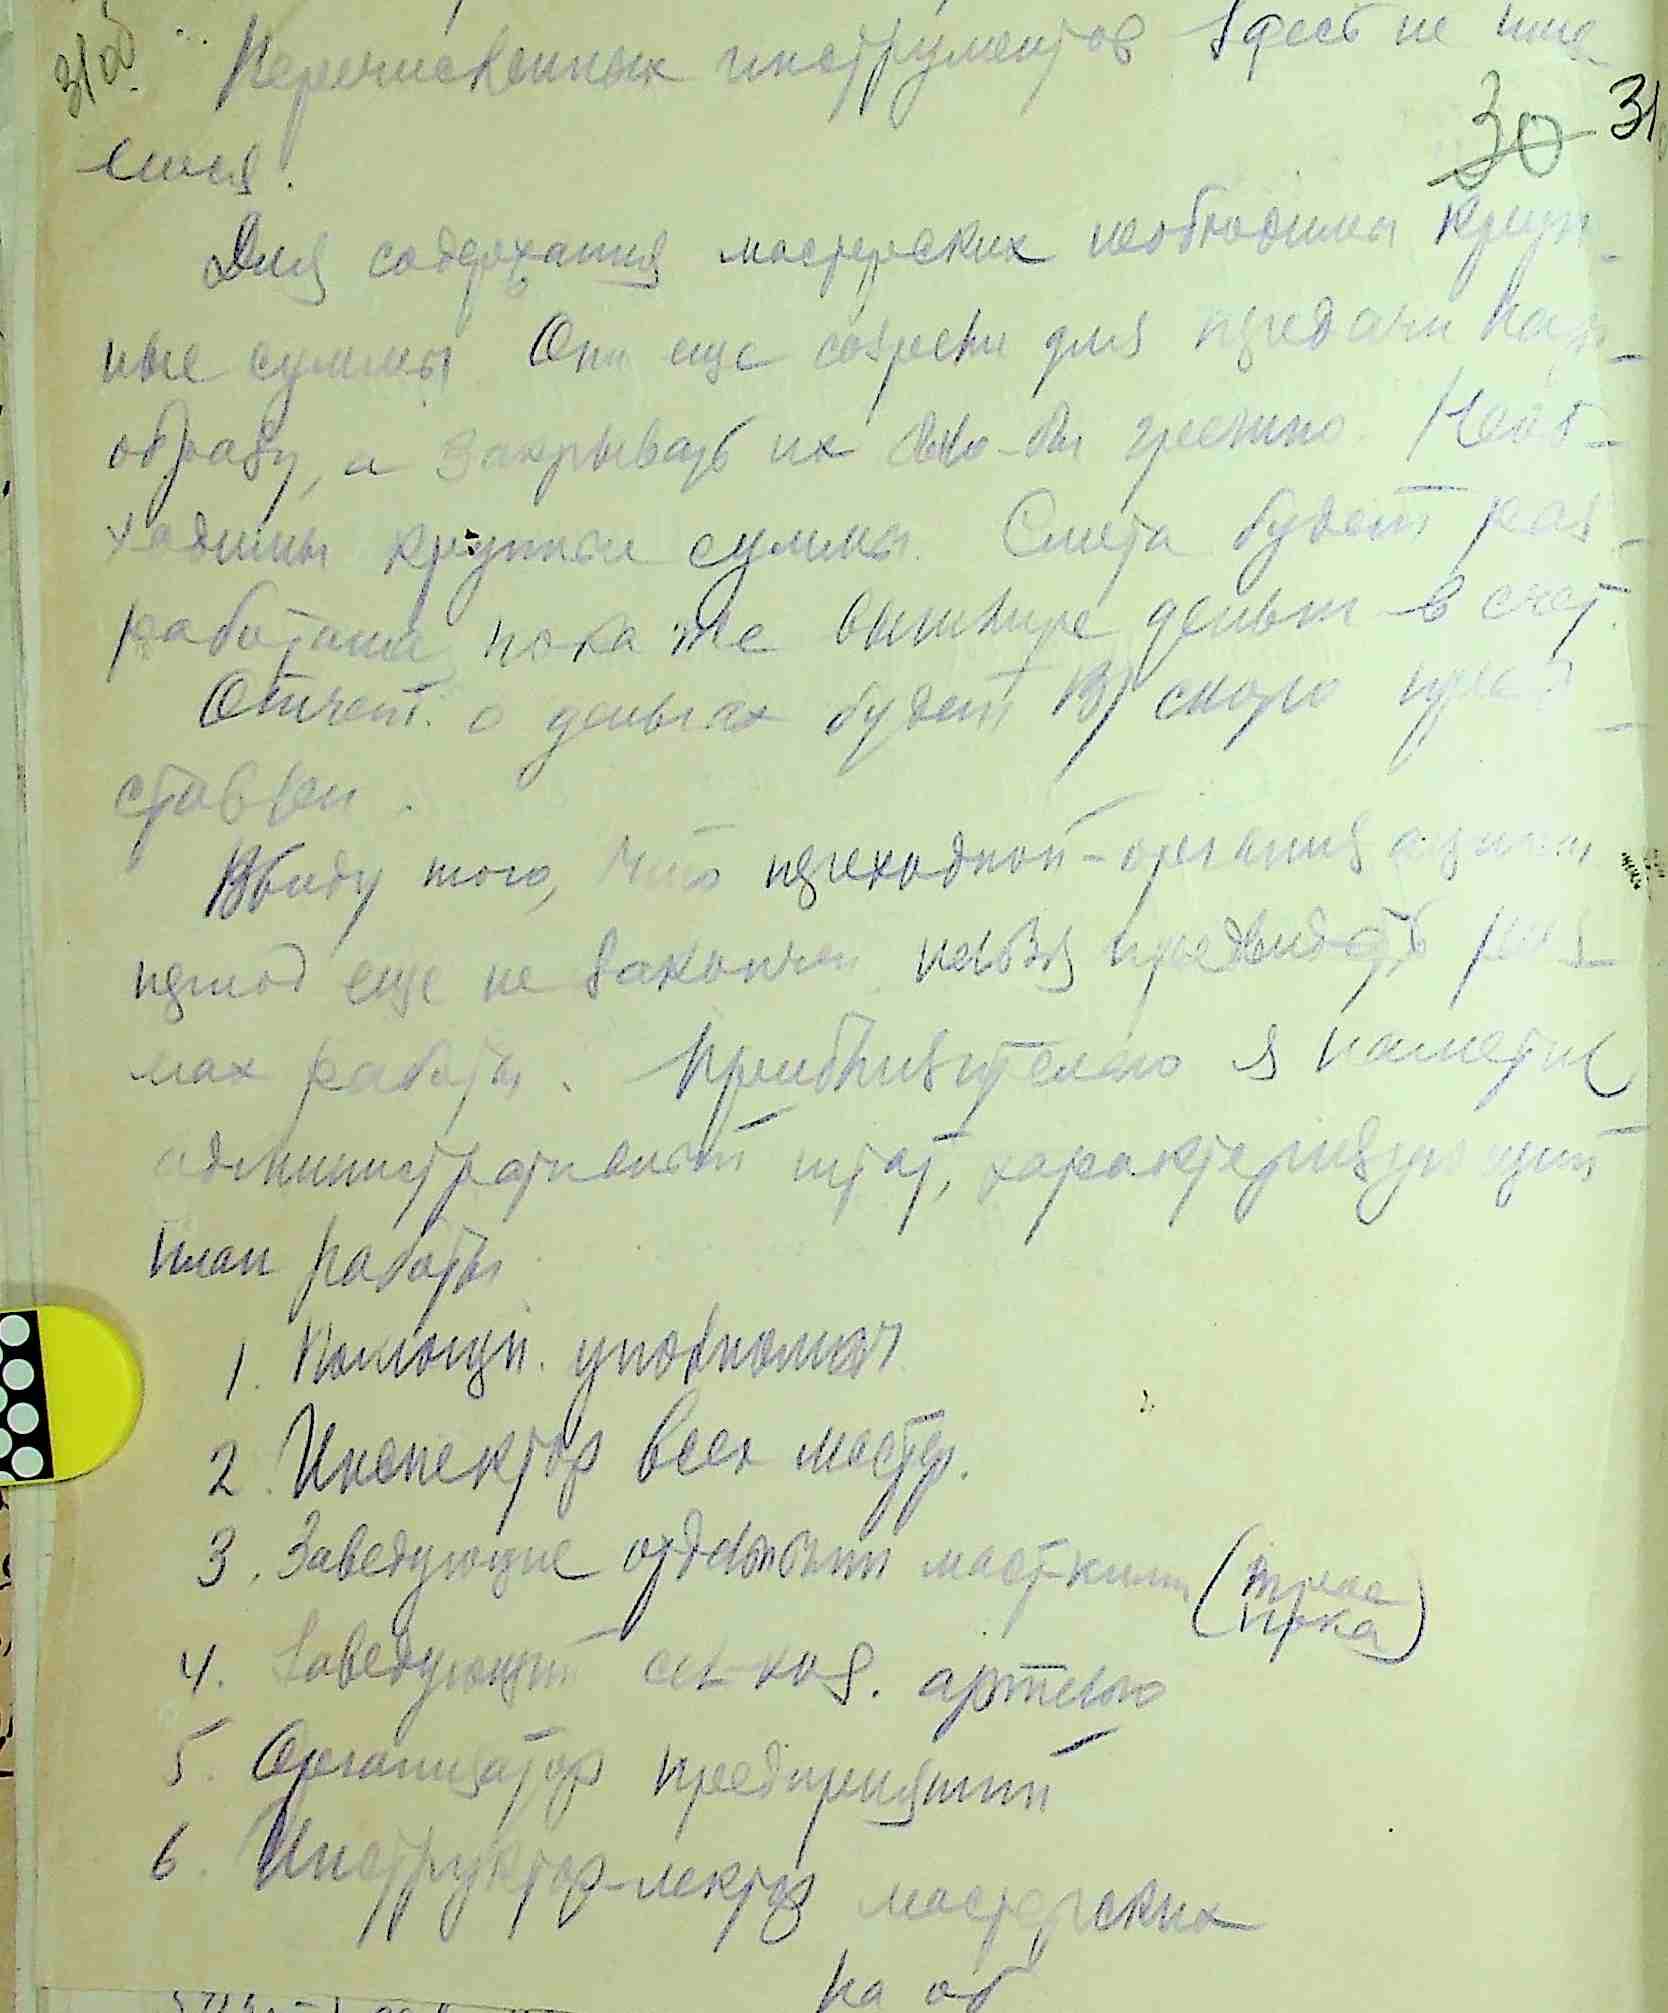 31об
Перечисленных инструментов здесь не име-
30 31
лось.
Для содержания мастерских необходимы круп-
ные суммы Они еще созрели для передачи Нар-
образу, а закрывать их было-бы грешно. Необ-
ходимы крупные суммы. Смета будет раз-
работана, пока же вышлите деньги в счет.
Отчет о деньгах будет вскоре пред-
ставлен.
Ввиду того, что переходной-организационный
период еще не закончен нельзя предвидеть раз-
мах работы. Приблизительно я наметил
административный штат, характеризующий
план работы
1. Помощн. уполномоч
2. Инспектор всех мастер.
3. Заведующие отдельными маст-кими (трое
пока)
4. Заведующий сел-хоз. артелью
5. Организатор предприятий
6. Инструктор-лектор мастерских
на об